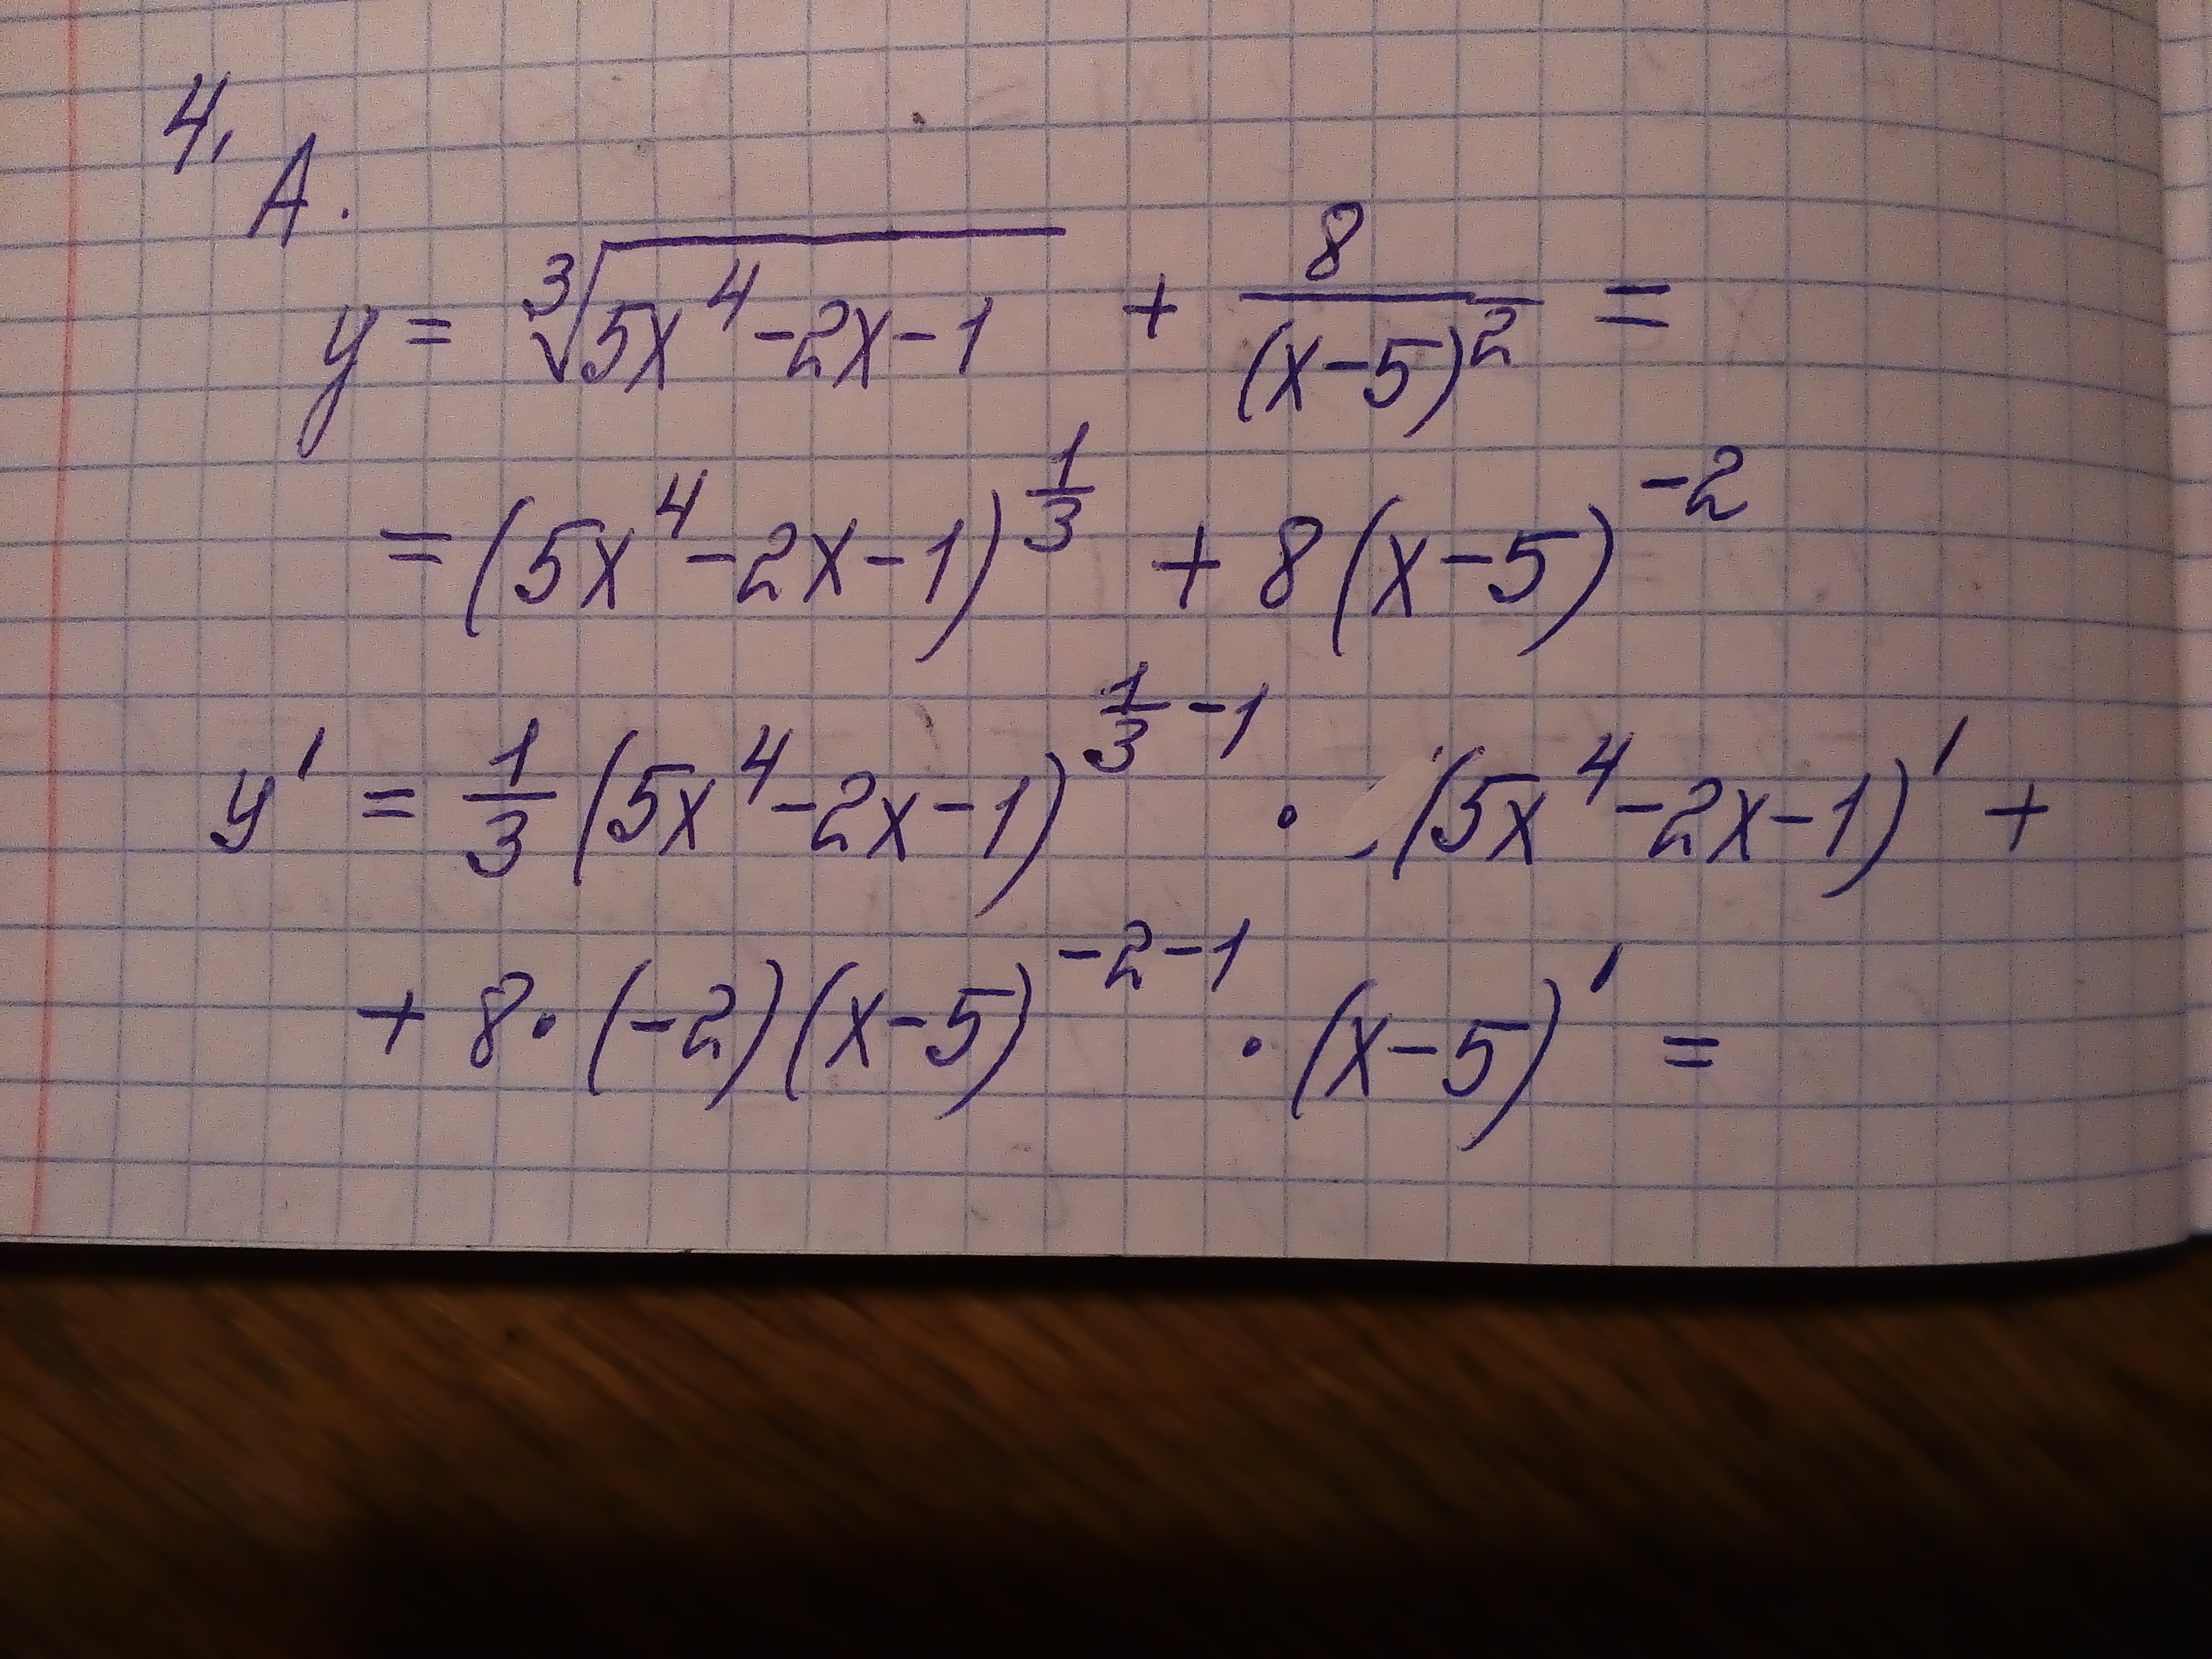 4,
A.
y = ∛(5x⁴-2x-1) + 8/(x-5)² =
= (5x⁴-2x-1)^(1/3) + 8(x-5)^(-2)
y' = 1/3 (5x⁴-2x-1)^(1/3 -1) · (5x⁴-2x-1)' +
+ 8·(-2)(x-5)^(-2-1) · (x-5)' =